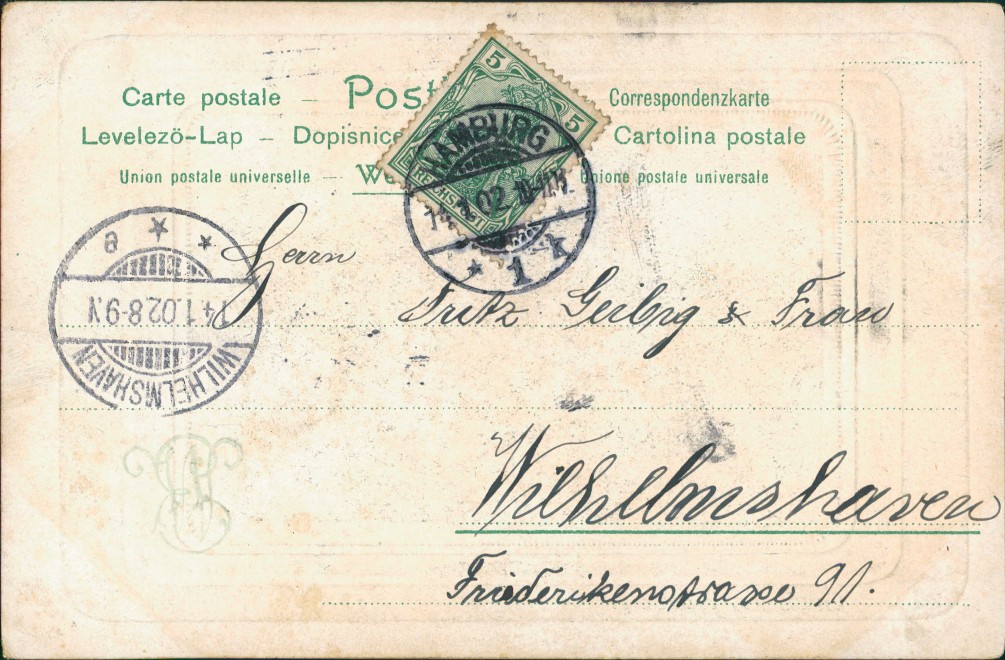 Carte postale – Post Correspondenzkarte
Levelezö-Lap – Dopisnice Cartolina postale
Union postale universelle – We Unione postale universale
5 5
REICHSPOST
HAMBURG
.02
* 1
WILHELMSHAVEN
14.1.02.8-9.N.
* * e
Herrn
Fritz Geibig & Frau
Wilhelmshaven
Friederikenstrasse 91.